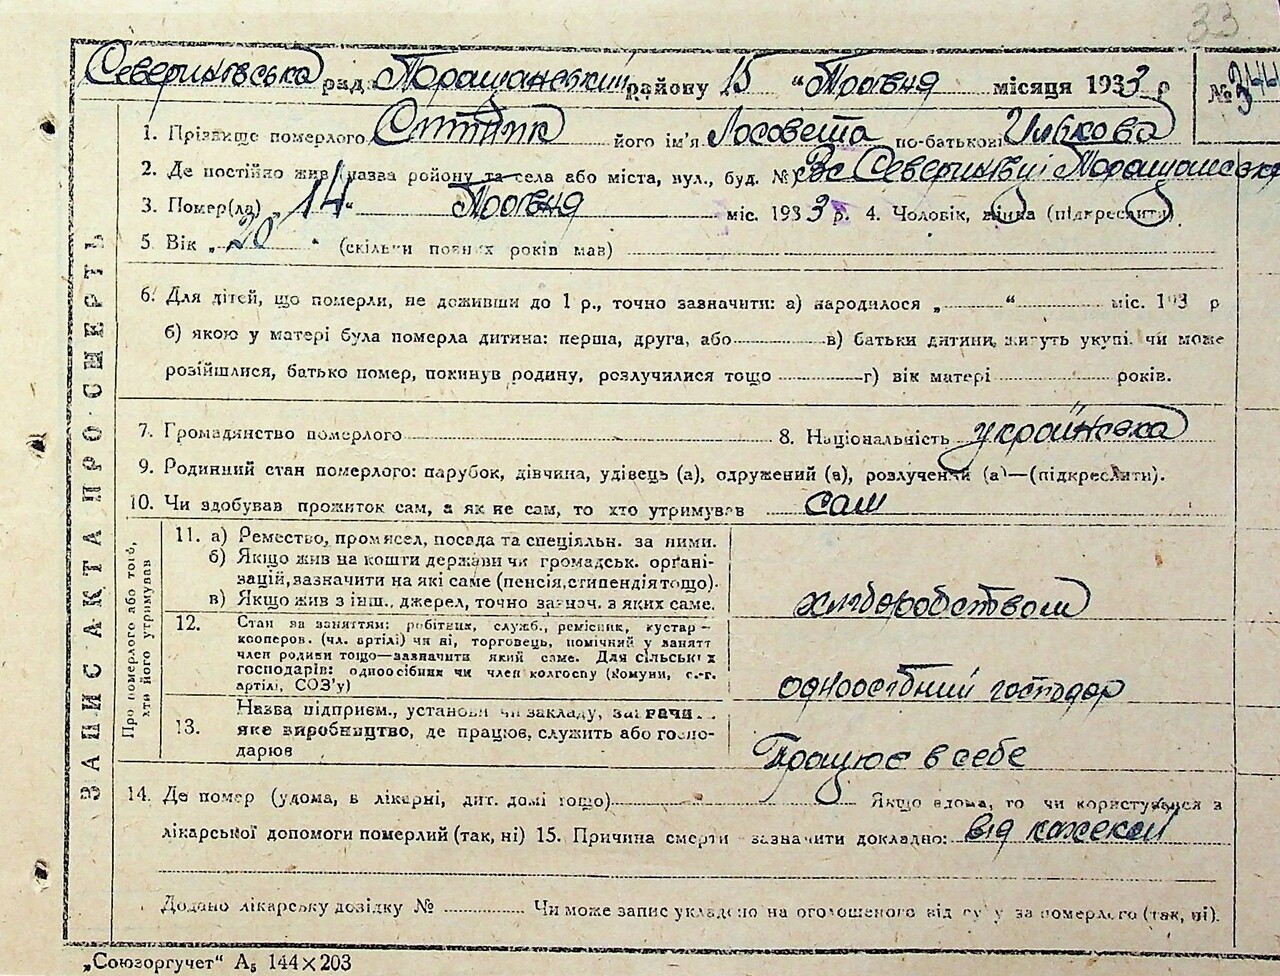 33
Северинівська рад Таращанський району 15 "Травня місяця 1933 р №344
1. Прізвище померлого Ситник його ім'я Лисовета по-батькові Илькова
2. Де постійно жив (назва району та села або міста, вул., буд. №) Вс Северинівці Таращанське
3. Помер(ла) „14" Травня міс. 1933 р. 4. Чоловік, жінка (підкреслити)
5. Вік „20" (скільки повних років мав)
6. Для дітей, що померли, не доживши до 1 р., точно зазначити: а) народилося „ " міс. 193 р
б) якою у матері була померла дитина: перша, друга, або в) батьки дитини живуть укупі, чи може
розійшлися, батько помер, покинув родину, розлучилися тощо г) вік матері років.
7. Громадянство померлого 8. Національність українська
9. Родинний стан померлого: парубок, дівчина, удівець (а), одружений (а), розлучений (а)—(підкреслити).
10. Чи здобував прожиток сам, а як не сам, то хто утримував сам
ЗАПИС АКТА ПРО СМЕРТЬ
Про померлого або того, хти його утримував
11. а) Ремество, промисел, посада та спеціяльн. за ними.
б) Якщо жив на кошти держави чи громадськ. орґані-
зацій, зазначити на які саме (пенсія, стипендія тощо).
в) Якщо жив з інш., джерел, точно зазнач. з яких саме.
хліборобством
12. Стан за заняттям: робітник, служб., ремісник, кустар-
кооперов. (чл. артілі) чи ні, торговець, помічний у занятт
член родини тощо—зазначити який саме. Для сільськ х
господарів: одноосібник чи член колгоспу (комуни, с.-г.
артілі, СОЗ'у)
одноосібний господар
13. Назва підприєм., установи чи закладу, зазначи...
яке виробництво, де працює, служить або госпо-
дарює
Працює в себе
14. Де помер (удома, в лікарні, дит. домі тощо) Якщо вдома, то чи користувався з
лікарської допомоги померлий (так, ні) 15. Причина смерти - зазначити докладно: від кахексії
Додано лікарську довідку № Чи може запис укладено на оголошеного від суду за померлого (так, ні).
„Союзоргучет" А₅ 144×203